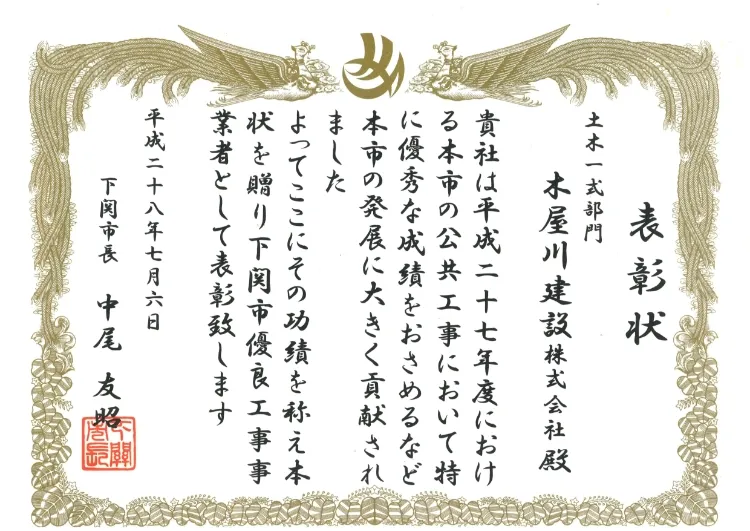 表彰状
土木一式部門
木屋川建設株式会社 殿
貴社は平成二十七年度におけ
る本市の公共工事において特
に優秀な成績をおさめるなど
本市の発展に大きく貢献され
ました
よってここにその功績を称え本
状を贈り下関市優良工事事
業者として表彰致します
平成二十八年七月六日
下関市長 中尾 友昭
下關市長